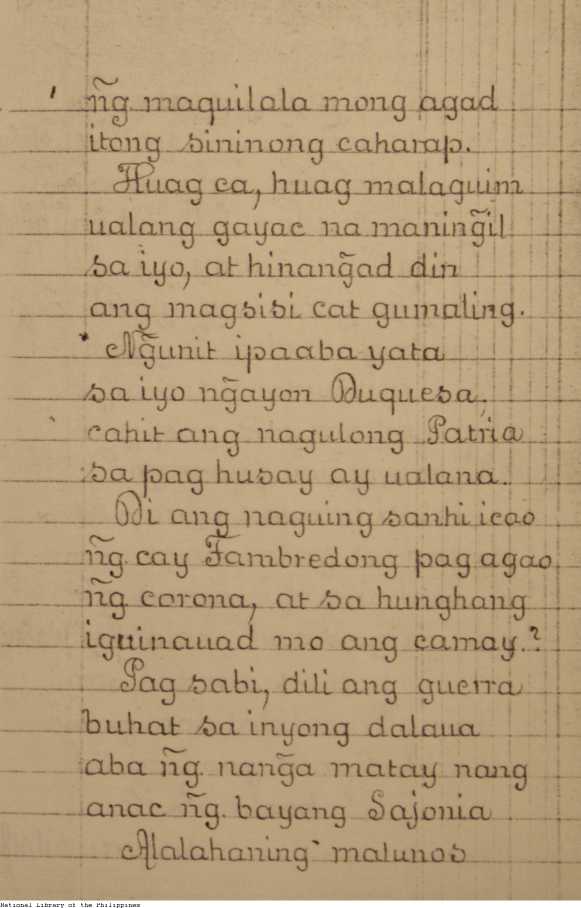 n͠g. maquilala mong agad
itong sininong caharap.
Huag ca, huag malaguim
ualang gayac na maning̃il
sa iyo, at hinang̃ad din
ang magsisi cat gumaling.
Ng̃unit ipaaba yata
sa iyo ng̃ayon Duquesa,
cahit ang nagulong Patria
sa pag husay ay ualana.
Di ang naguing sanhi icao
n͠g. cay Fambredong pag agao
n͠g. corona, at sa hunghang
iguinauad mo ang camay.?
Pag sabi, dili ang guerra
buhat sa inyong dalaua
aba n͠g. nang̃a matay nang
anac n͠g. bayang Sajonia
Alalahaning malunos
National Library of the Philippines